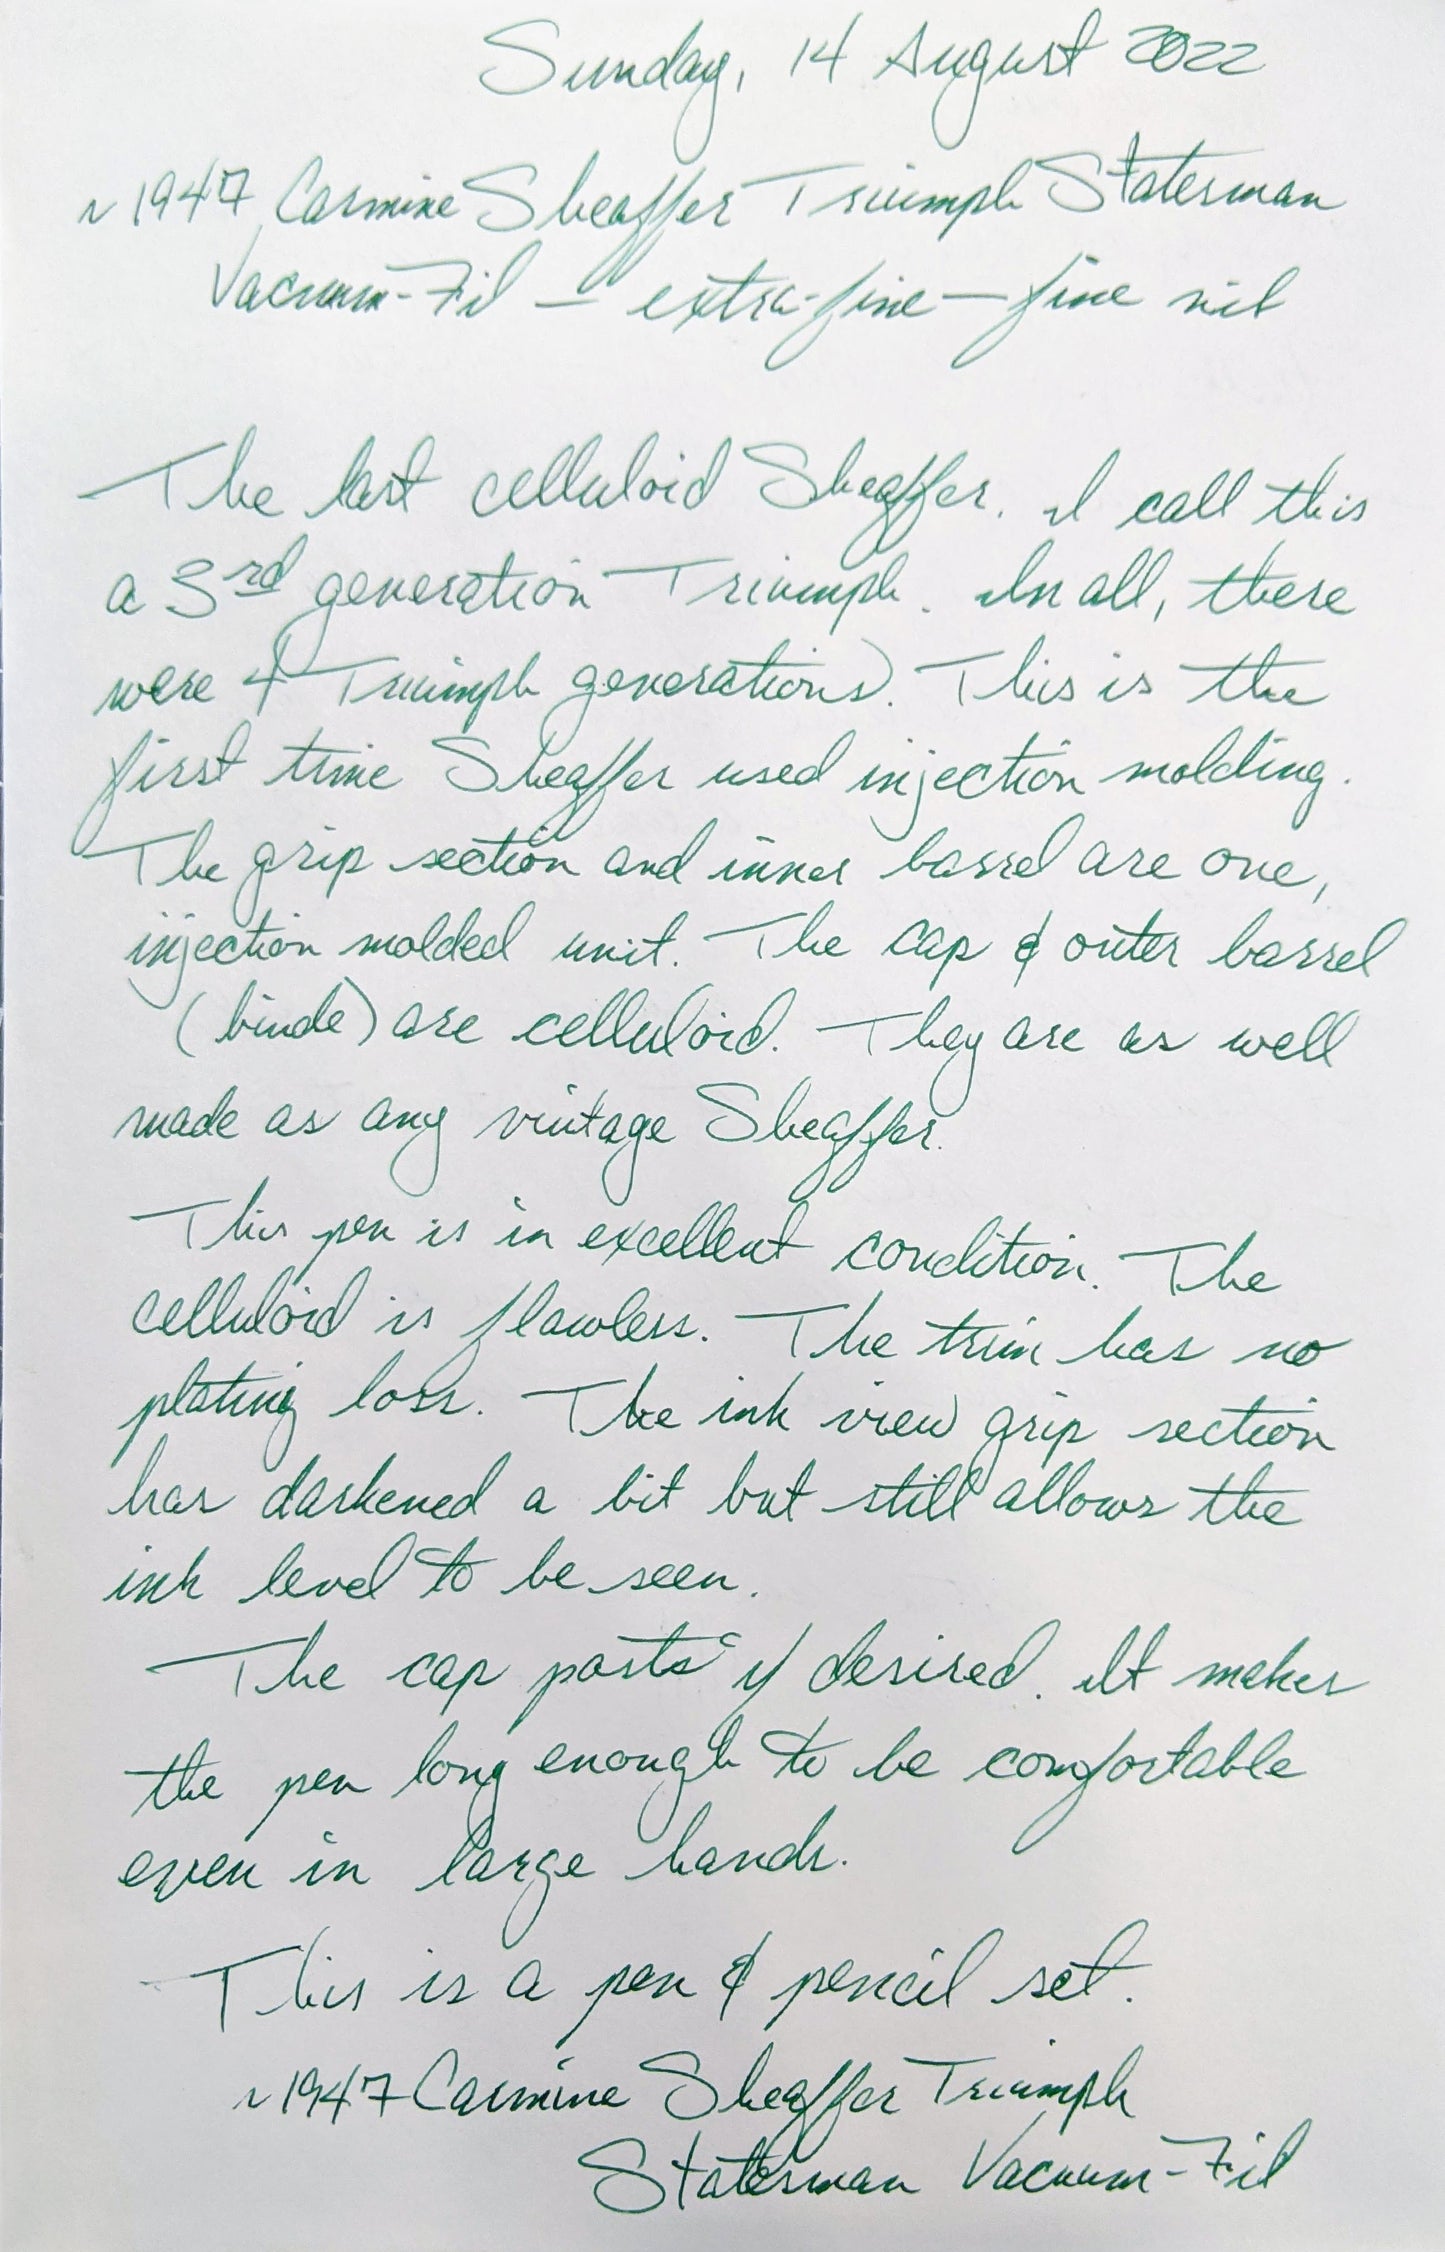 Sunday, 14 August 2022
~1947 Carmine Sheaffer Triumph Statesman
Vacuum-Fil — extra-fine — fine nib
The last celluloid Sheaffer. I call this
a 3rd generation Triumph. In all, there
were 4 Triumph generations). This is the
first time Sheaffer used injection molding.
The grip section and inner barrel are one,
injection molded unit. The cap & outer barrel
(binde) are celluloid. They are as well
made as any vintage Sheaffer.
This pen is in excellent condition. The
celluloid is flawless. The trim has no
plating loss. The ink view grip section
has darkened a bit but still allows the
ink level to be seen.
The cap posts if desired. It makes
the pen long enough to be comfortable
even in large hands.
This is a pen & pencil set.
~1947 Carmine Sheaffer Triumph
Statesman Vacuum-Fil